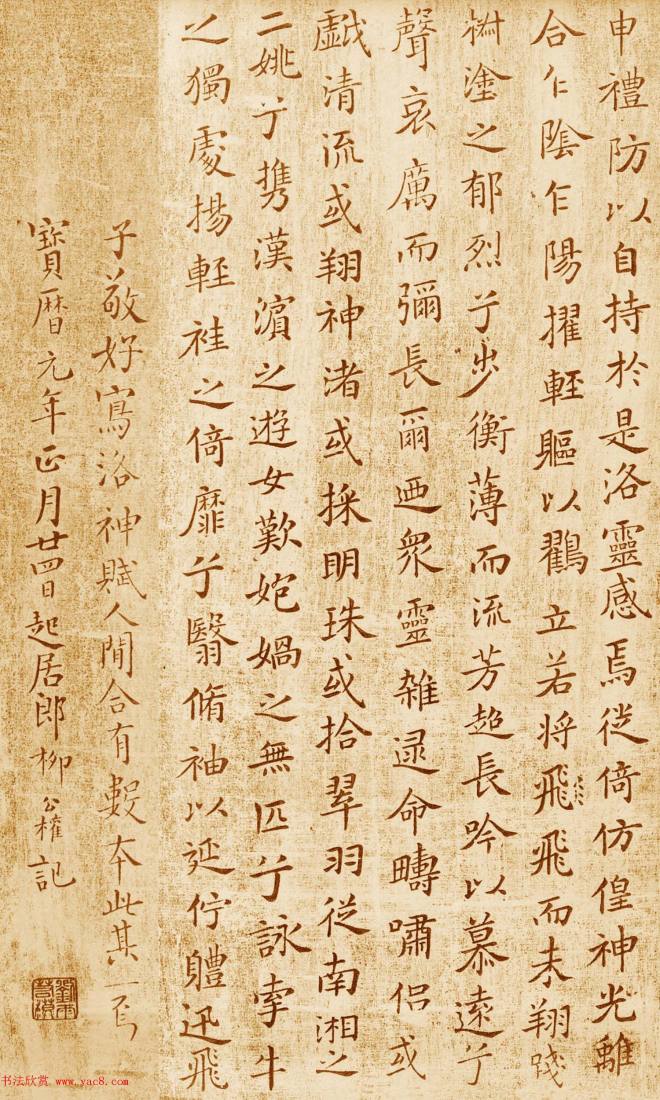 申禮防以自持於是洛靈感焉從倚仿偟神光離
合乍陰乍陽擢輕軀以鸖立若將飛飛而未翔踐
椒塗之郁烈兮步衡薄而流芳超長吟以慕遠兮
聲哀厲而彌長爾迺衆靈雜遝命疇嘯侶或
戱清流或翔神渚或採明珠或拾翠羽從南湘之
二姚兮携漢濱之遊女歎媧之無匹兮詠牽牛
之獨處揚輕袿之倚靡兮翳脩袖以延佇體迅飛
子敬好寫洛神賦人間合有數本此其一焉
寶曆元年正月廿四日起居郎柳公權記
书法欣赏 www.yac8.com